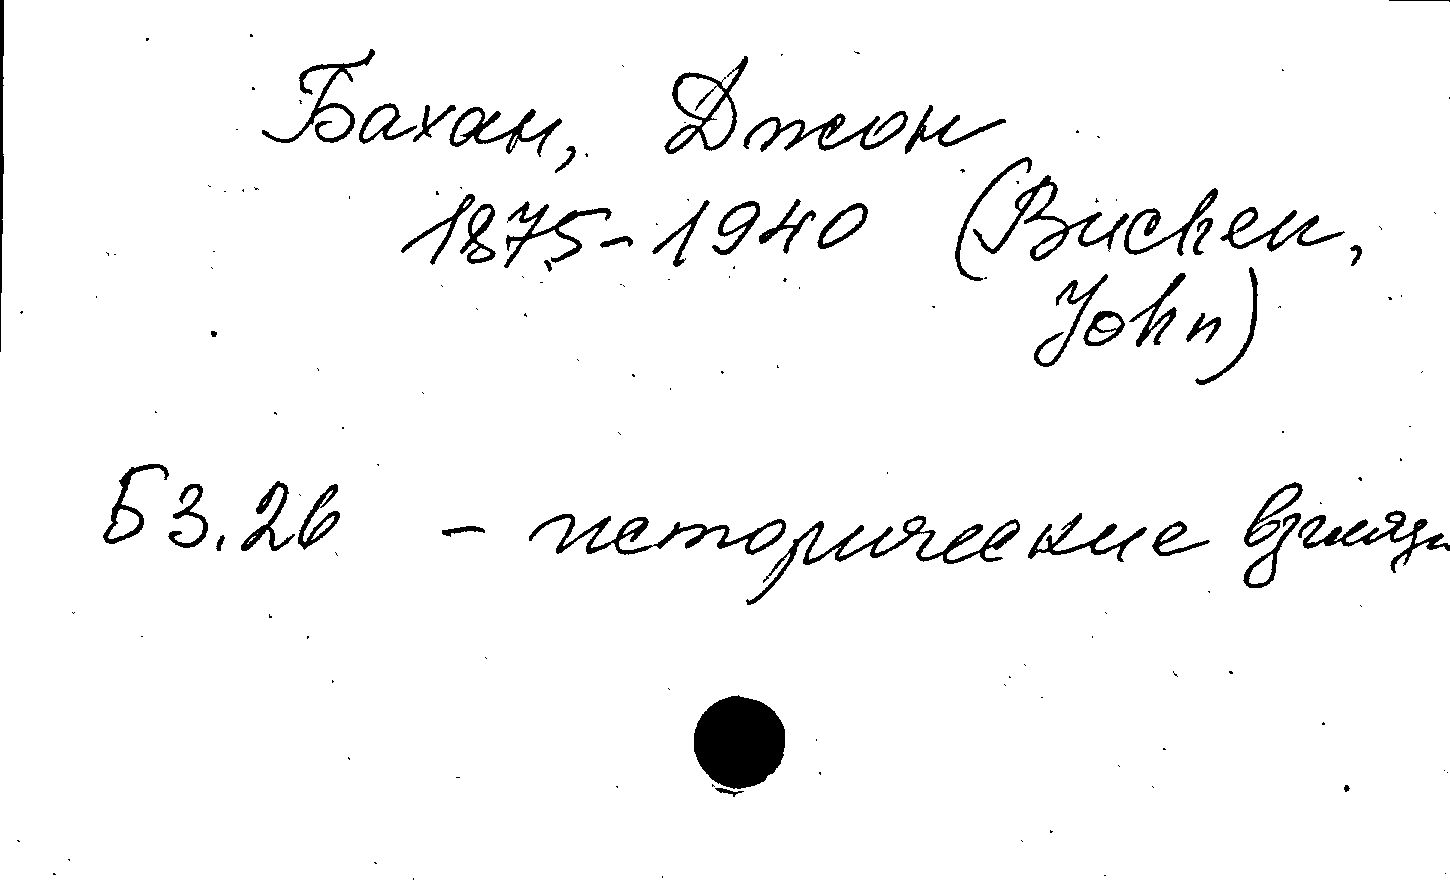 Бахан, Джон
1875-1940 (Buchen,
John)
Б3.2в - исторические взгляды